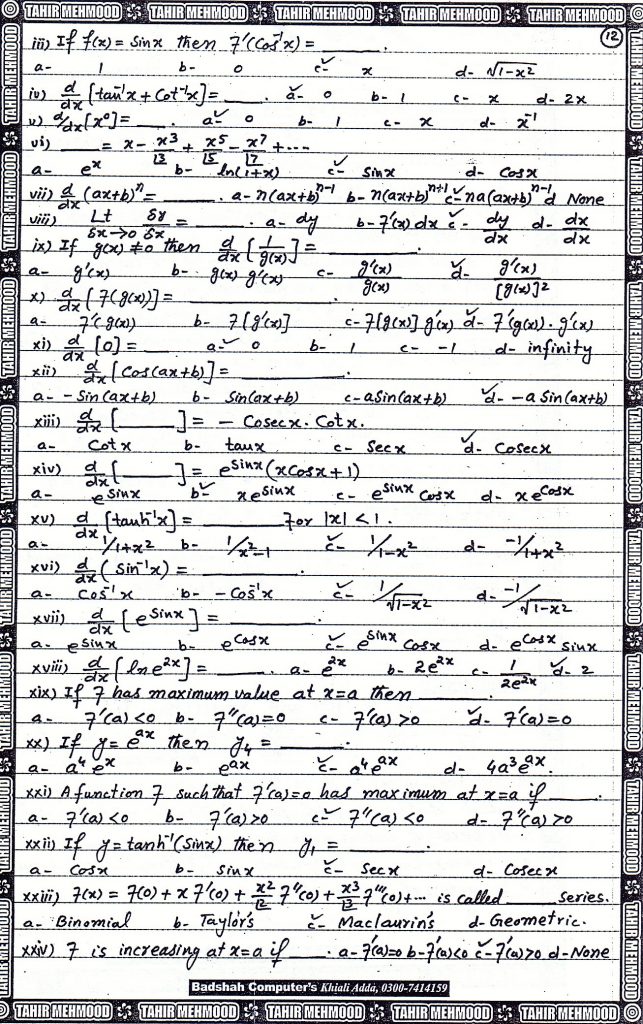 TAHIR MEHMOOD TAHIR MEHMOOD TAHIR MEHMOOD TAHIR MEHMOOD TAHIR MEHMOOD
12
iii) If f(x) = Sinx then f'(Cos⁻¹x) = ____.
a- 1 b- 0 ✓c- x d- √1-x²
iv) d/dx [tan⁻¹x + Cot⁻¹x] = ____. ✓a- 0 b- 1 c- x d- 2x
v) d/dx [x⁰] = ____. ✓a- 0 b- 1 c- x d- x⁻¹
vi) ____ = x - x³/|3 + x⁵/|5 - x⁷/|7 + ...
a- eˣ b- ln(1+x) ✓c- Sinx d- Cosx
vii) d/dx (ax+b)ⁿ = ____. a- n(ax+b)ⁿ⁻¹ b- n(ax+b)ⁿ⁺¹ ✓c- na(ax+b)ⁿ⁻¹ d None
viii) Lt δx→0 δy/δx = ____. a- dy b- f'(x) dx ✓c- dy/dx d- dx/dx
ix) If g(x) ≠ 0 then d/dx [1/g(x)] = ____.
a- g'(x) b- g(x) g'(x) c- g'(x)/g(x) ✓d- g'(x)/[g(x)]²
x) d/dx [f(g(x))] = ____.
a- f'(g(x)) b- f[g'(x)] c- f[g(x)] g'(x) ✓d- f'(g(x)). g'(x)
xi) d/dx [0] = ____. ✓a- 0 b- 1 c- -1 d- infinity
xii) d/dx [Cos(ax+b)] = ____.
a- - Sin(ax+b) b- Sin(ax+b) c- aSin(ax+b) ✓d- -a Sin(ax+b)
xiii) d/dx [____] = - Cosecx. Cotx.
a- Cotx b- tanx c- Secx ✓d- Cosecx
xiv) d/dx [____] = e^Sinx (xCosx + 1)
a- e^Sinx ✓b- xe^Sinx c- e^Sinx Cosx d- xe^Cosx
xv) d/dx [tanh⁻¹x] = ____ For |x| < 1.
a- 1/1+x² b- 1/x²-1 ✓c- 1/1-x² d- -1/1+x²
xvi) d/dx (Sin⁻¹x) = ____.
a- Cos⁻¹x b- - Cos⁻¹x ✓c- 1/√1-x² d- -1/√1-x²
xvii) d/dx [e^Sinx] = ____.
a- e^Sinx b- e^Cosx ✓c- e^Sinx Cosx d- e^Cosx Sinx
xviii) d/dx [ln e²ˣ] = ____. a- e²ˣ b- 2e²ˣ c- 1/2e²ˣ ✓d- 2
xix) If f has maximum value at x=a then ____.
a- f'(a)<0 b- f''(a)=0 c- f'(a)>0 ✓d- f'(a)=0
xx) If y = eᵃˣ then y₄ = ____.
a- a⁴eˣ b- eᵃˣ ✓c- a⁴eᵃˣ d- 4a³eᵃˣ.
xxi) A function f such that f'(a)=0 has maximum at x=a if ____.
a- f'(a)<0 b- f'(a)>0 ✓c- f''(a)<0 d- f''(a)>0
xxii) If y= tanh⁻¹(Sinx) then y₁ = ____.
a- Cosx b- Sinx ✓c- Secx d- Cosecx
xxiii) f(x) = f(0) + x f'(0) + x²/|2 f''(0) + x³/|3 f'''(0)+... is called ____ Series.
a- Binomial b- Taylor's ✓c- Maclaurin's d- Geometric.
xxiv) f is increasing at x=a if ____. a- f'(a)=0 b- f'(a)<0 ✓c- f'(a)>0 d- None
Badshah Computer's Khiali Adda, 0300-7414159
TAHIR MEHMOOD TAHIR MEHMOOD TAHIR MEHMOOD TAHIR MEHMOOD TAHIR MEHMOOD